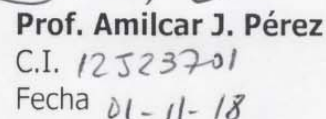 Prof. Amilcar J. Pérez
C.I. 12523701
Fecha 01-11-18